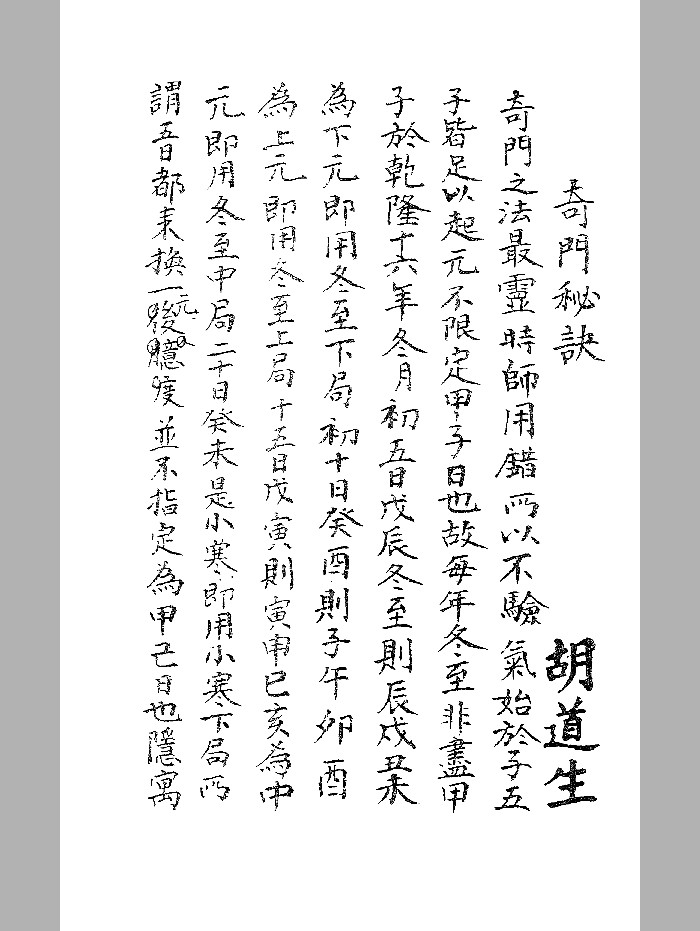 奇門秘訣
胡道生
奇門之法最靈時師用錯所以不驗氣始於子五
子皆足以起元不限定甲子日也故每年冬至非盡甲
子於乾隆十六年冬月初五日戊辰冬至則辰戌丑未
為下元即用冬至下局初十日癸酉則子午卯酉
為上元即用冬至上局十五日戊寅則寅申巳亥為中
元即用冬至中局二十日癸未是小寒即用小寒下局所
謂五日都來換一元後人臆度並不指定為甲己日也隱寓